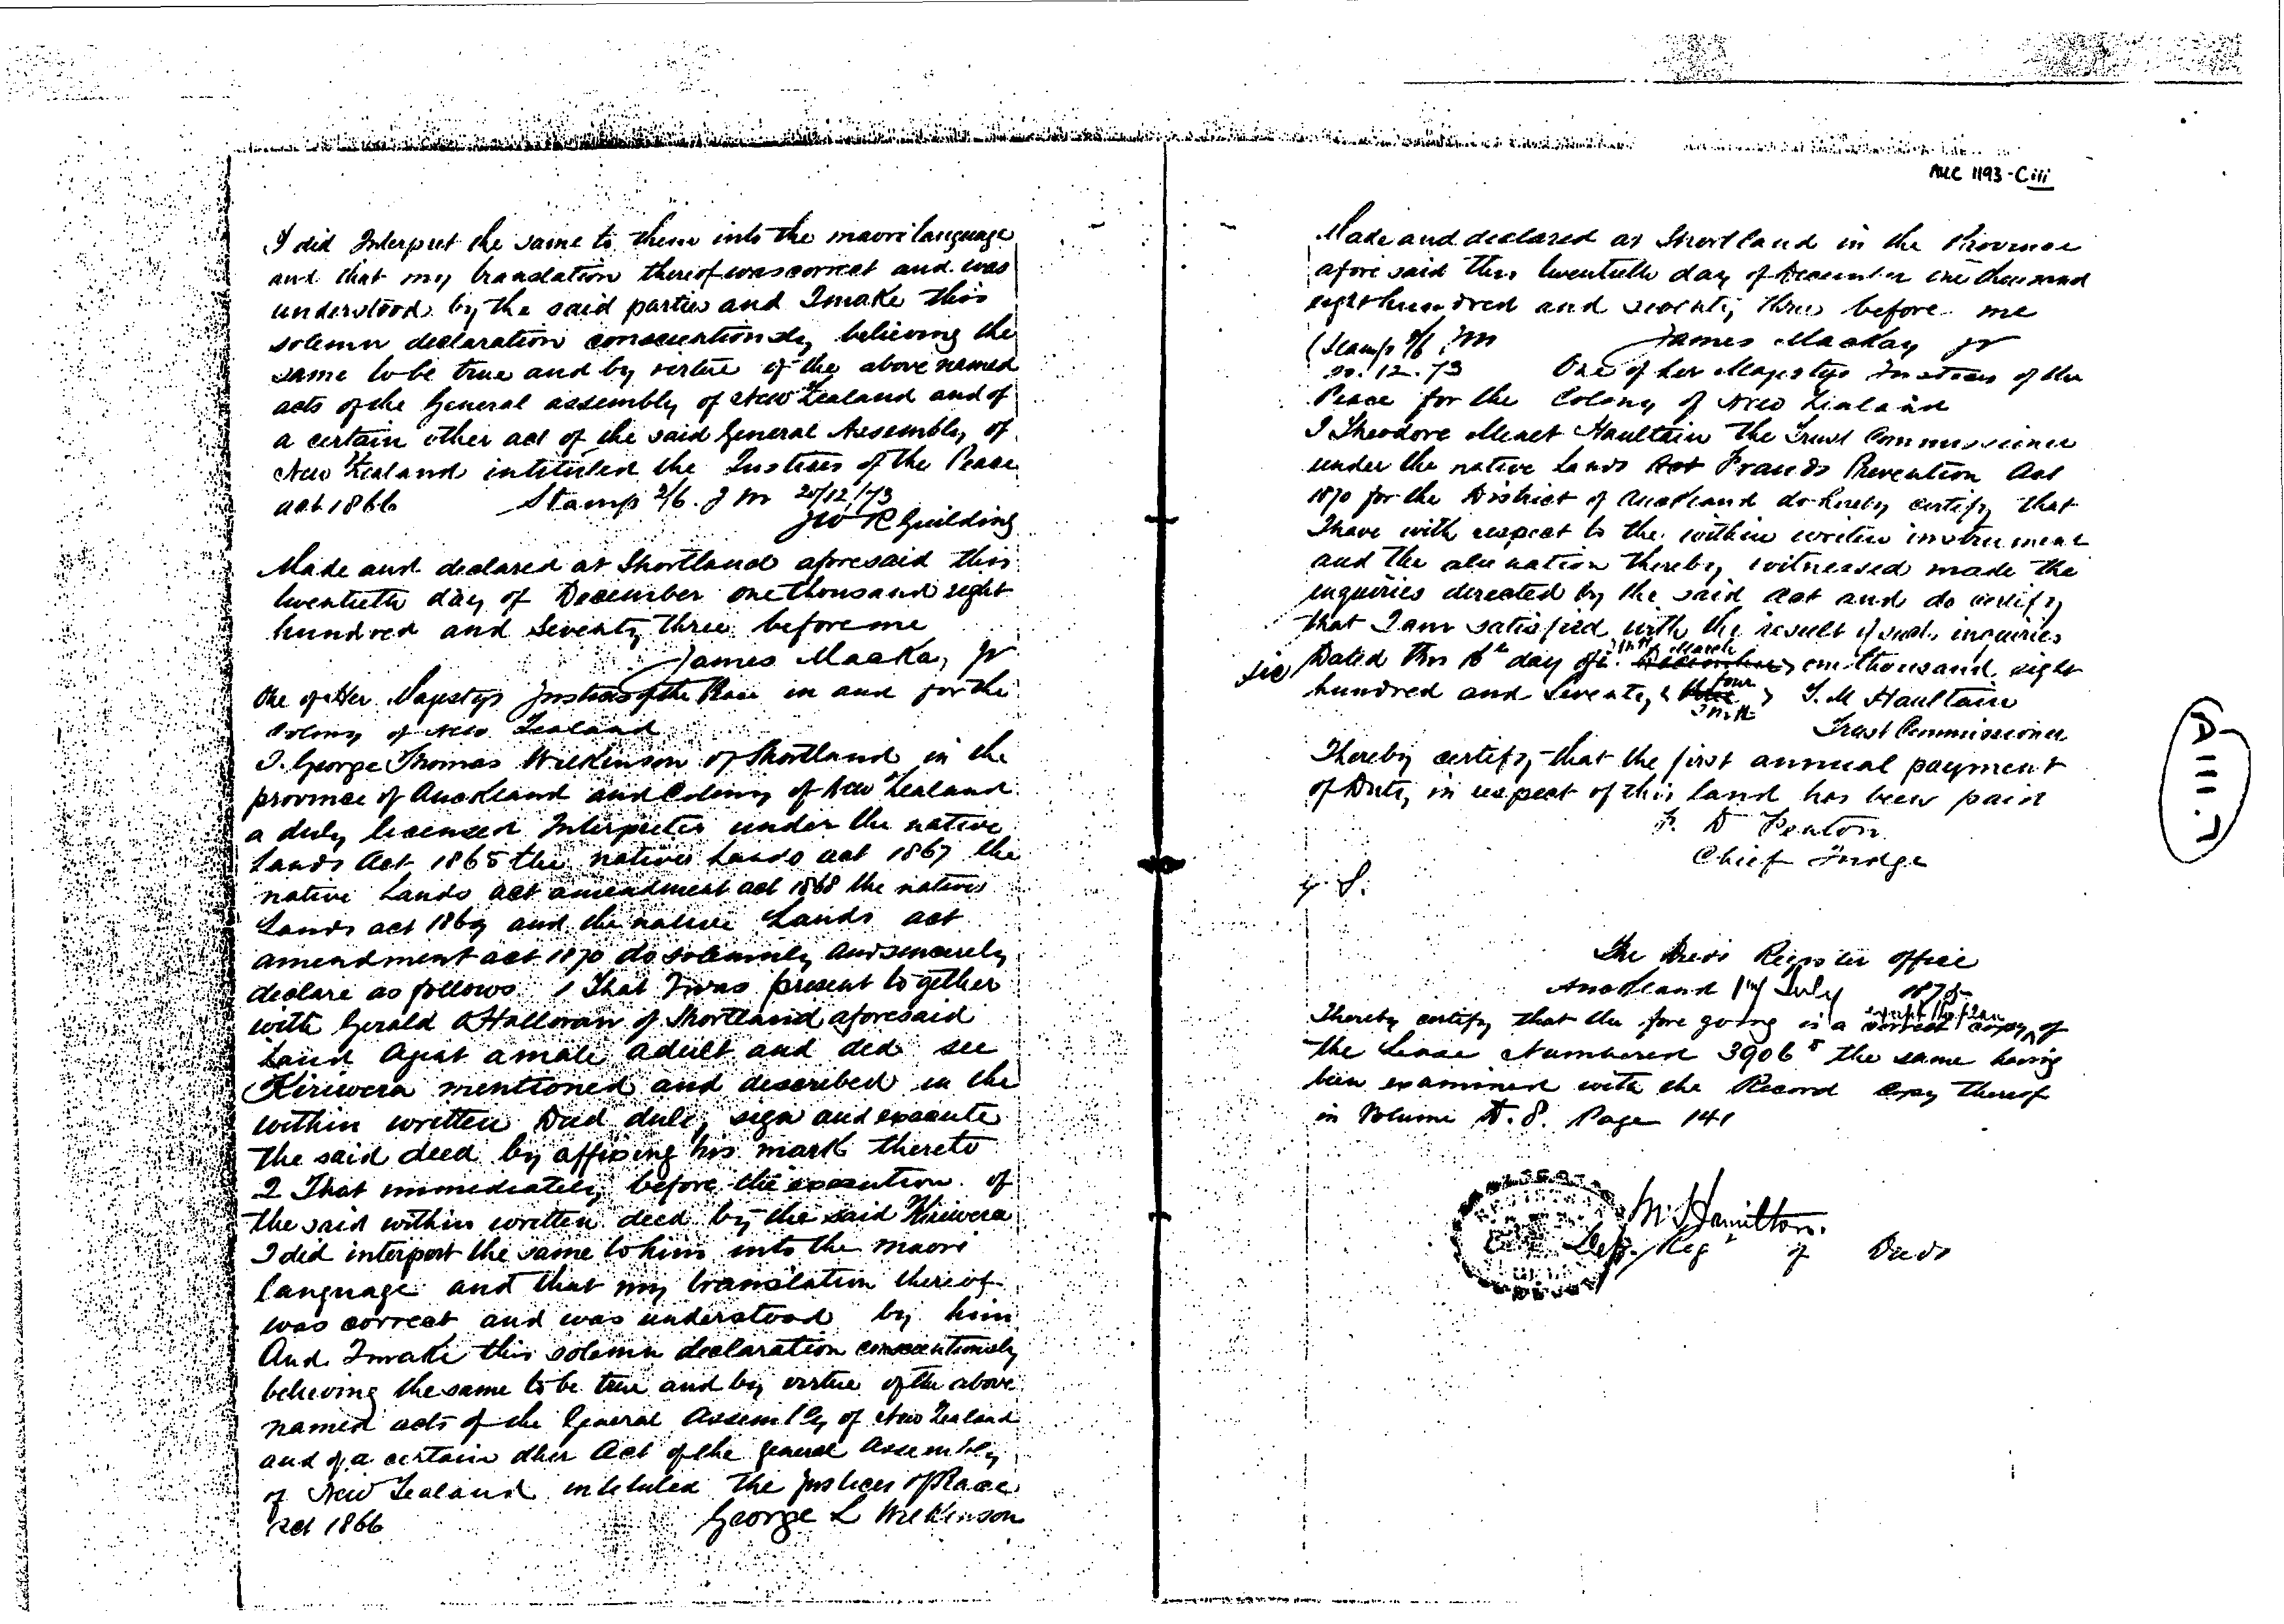 I did Interpret the same to them into the maori language
and that my translation thereof was correct and was
understood by the said parties and I make this
solemn declaration conscientiously believing the
same to be true and by virtue of the above named
acts of the General assembly of New Zealand and of
a certain other act of the said General Assembly of
New Zealand intituled the Justices of the Peace
act 1866 Stamp 2/6. J M 20/12/73
JW R Guilding
Made and declared at Shortland aforesaid this
twentieth day of December one thousand eight
hundred and seventy three before me
James Mackay Jr
One of Her Majestys Justices of the Peace in and for the
Colony of New Zealand
I. George Thomas Wilkinson of Shortland in the
province of Auckland and Colony of New Zealand
a duly licensed Interpreter under the native
Lands Act 1865 the native Lands act 1867 the
native Lands act amendment act 1868 the native
Lands act 1869 and the native Lands act
amendment act 1870 do solemnly and sincerely
declare as follows 1 That I was present together
with Gerald OHalloran of Shortland aforesaid
Land Agent a male adult and did see
Kiriwera mentioned and described in the
within written Deed duly sign and execute
the said deed by affixing his mark thereto
2 That immediately before the execution of
the said within written deed by the said Kiriwera
I did interpret the same to him into the maori
language and that my translation thereof
was correct and was understood by him
And I make this solemn declaration conscientiously
believing the same to be true and by virtue of the above
named acts of the General Assembly of New Zealand
and of a certain other Act of the general Assembly
of New Zealand intituled the Justices of Peace
Act 1866 George L Wilkinson
AUC 1193-Ciii
Made and declared at Shortland in the Province
aforesaid this twentieth day of December one thousand
eight hundred and seventy three before me
(Stamp 2/6 JM James Mackay Jr
20.12.73 One of her Majestys Justices of the
Peace for the Colony of New Zealand
I Theodore Minet Haultain the Trust Commissioner
under the native Lands Act Frauds Prevention Act
1870 for the District of Auckland do hereby certify that
I have with respect to the within written instrument
and the alienation thereby witnessed made the
inquiries directed by the said act and do certify
that I am satisfied with the result of such inquiries
TMH March
sic Dated this 16th day of December one thousand eight
hundred and seventy three four T. M Haultain
TMH
Trust Commissioner
I hereby certify that the first annual payment
of Duty in respect of this land has been paid
F. D Fenton
Chief Judge
The Deeds Register office
Auckland 1st July 1875
except the plan
I hereby certify that the fore going is a correct copy of
the Lease Numbered 3906 the same having
been examined with the Record copy thereof
in Volume D.8. Page 141
M. Hamilton.
Dep. Reg of Deeds